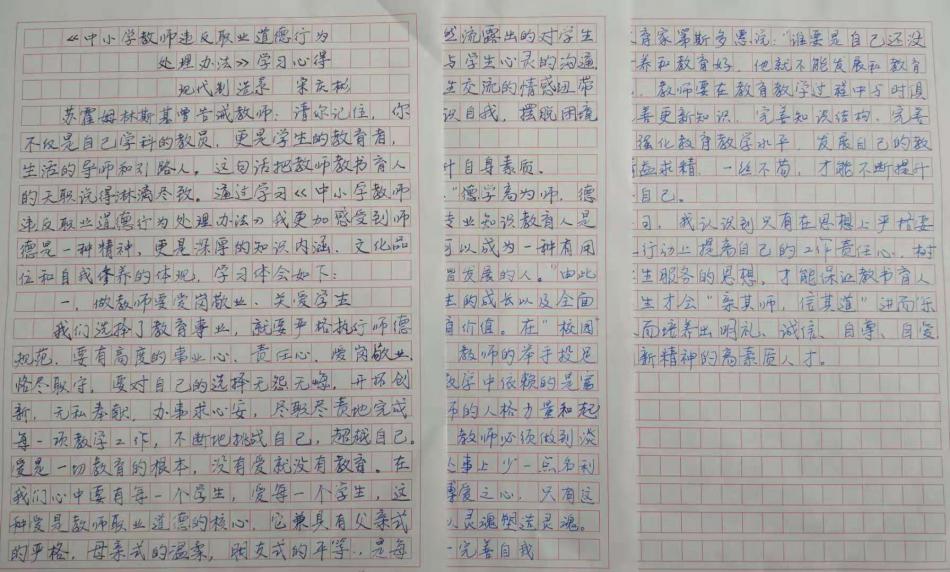 《中小学教师违反职业道德行为
处理办法》学习心得
现代制造系 宋庆彬
苏霍姆林斯基曾告诫教师：请你记住，你
不仅是自己学科的教员，更是学生的教育者，
生活的导师和引路人。这句话把教师教书育人
的天职说得淋漓尽致。通过学习《中小学教师
违反职业道德行为处理办法》我更加感受到师
德是一种精神，更是深厚的知识内涵、文化品
位和自我修养的体现，学习体会如下：
一、做教师要爱岗敬业、关爱学生
我们选择了教育事业，就要严格执行师德
规范，要有高度的事业心、责任心、爱岗敬业、
恪尽职守。要对自己的选择无怨无悔，开拓创
新，无私奉献，办事求心安，尽职尽责地完成
每一项教学工作，不断地挑战自己，超越自己。
爱是一切教育的根本，没有爱就没有教育。在
我们心中要有每一个学生，爱每一个学生，这
种爱是教师职业道德的核心，它兼具有父亲式
的严格，母亲式的温柔，朋友式的平等，是每
然流露出的对学生
与学生心灵的沟通
生交流的情感纽带
识自我，摆脱困境
升自身素质。
“德学高为师，德
专业知识教育人是
可以成为一种有用
谐发展的人。”由此
生的成长以及全面
育价值。在“校园”
教师的举手投足
教学中依赖的是富
师的人格力量和起
教师必须做到淡
处事上少一点名利
博爱之心，只有这
以灵魂塑造灵魂。
一完善自我
育家第斯多惠说：“谁要是自己还没
养和教育好，他就不能发展和教育
，教师要在教育教学过程中与时俱
善更新知识，完善知识结构，完善
强化教育教学水平，发展自己的教
益求精，一丝不苟，才能不断提升
自己。
习，我认识到只有在思想上严格要
行动上提高自己的工作责任心，树
生服务的思想，才能保证教书育人
生才会“亲其师，信其道”进而“乐
而培养出明礼、诚信、自尊、自爱
新精神的高素质人才。